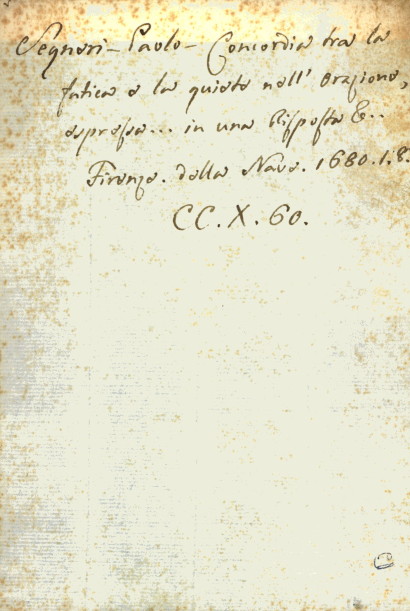 Segneri - Paolo - Concordia tra la
fatica e la quiete nell' orazione,
espressa... in una Risposta &..
Firenze. della Nave. 1680. 1. 8.
CC. X. 60.